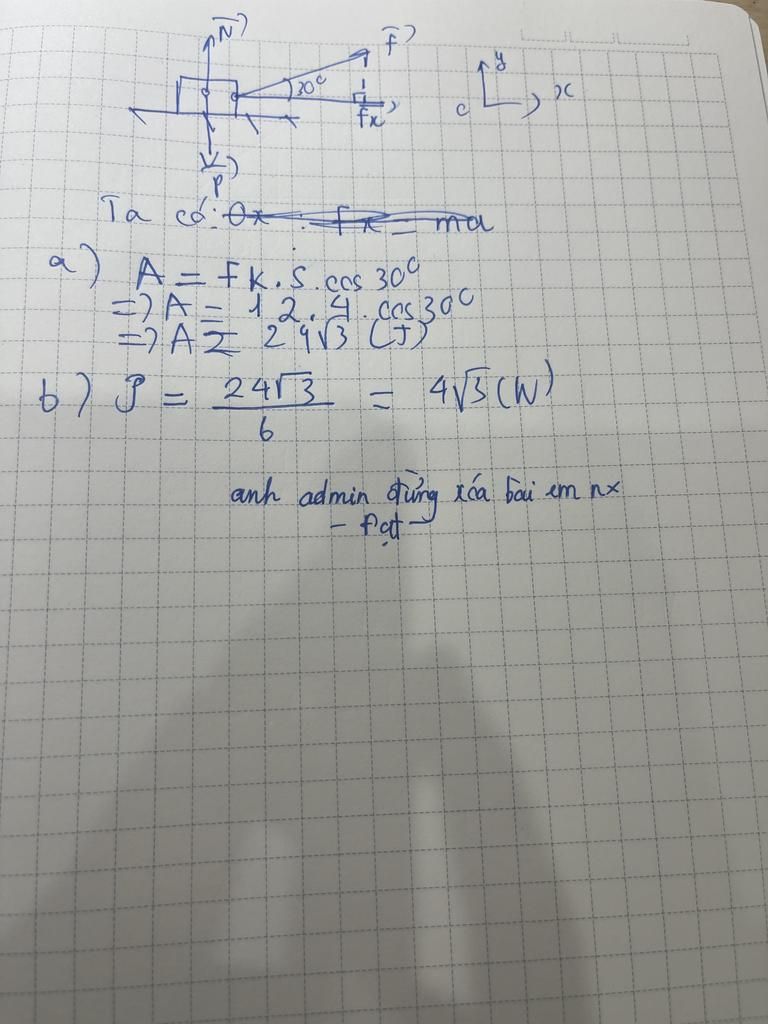 N
F
30°
Fx
y
x
P
Ta có: Ox : Fx = ma
a) A = Fk.S.cos 30°
=> A = 12.4.cos30°
=> A = 24√3 (J)
b) P = 24√3 / 6 = 4√3 (W)
anh admin đừng xóa bài em nx
- Đạt -